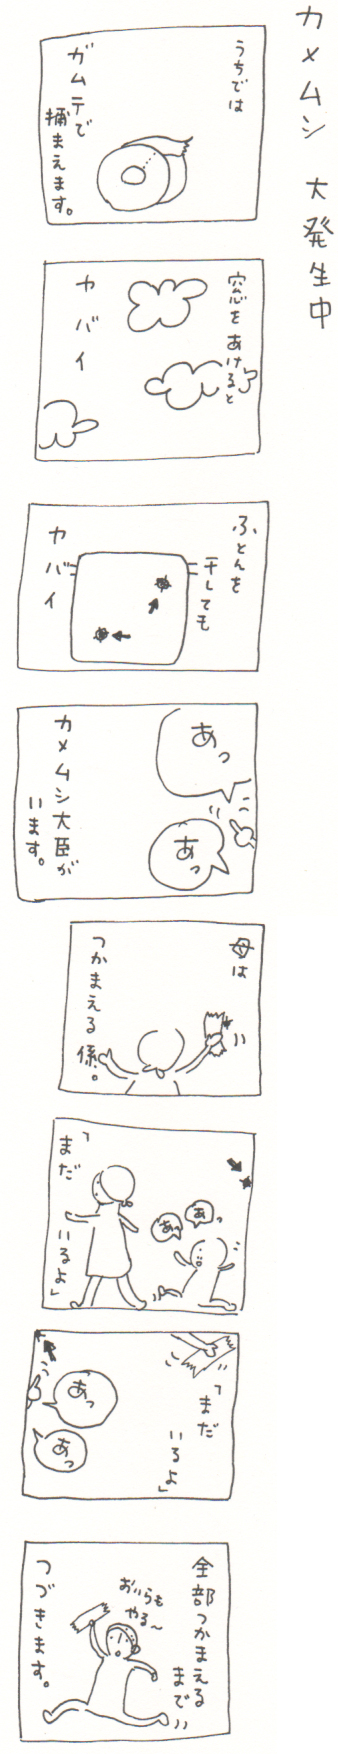 カメムシ 大発生中
うちでは
ガムテで
捕まえます。
窓をあけると
ヤバイ
ふとんを
干しても
ヤバイ
あっ
あっ
カメムシ大臣が
います。
母は
つかまえる係。
あっ
あっ
「まだ
いるよ」
「まだ
いるよ」
あっ
あっ
全部つかまえる
まで
おいらも
やる〜
つづきます。